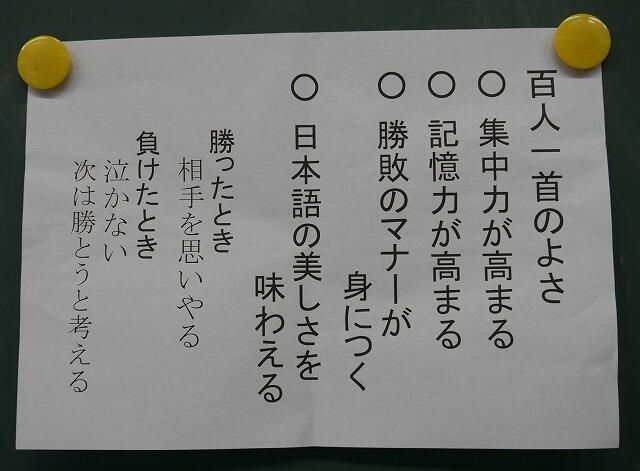 百人一首のよさ
○ 集中力が高まる
○ 記憶力が高まる
○ 勝敗のマナーが
身につく
○ 日本語の美しさを
味わえる
勝ったとき
相手を思いやる
負けたとき
泣かない
次は勝とうと考える